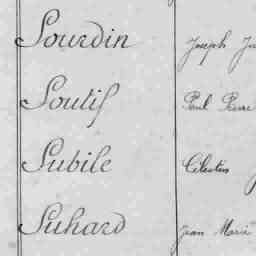 Sourdin Joseph
Soutif Paul Pierre
Subile Célestin
Suhard Jean Marie